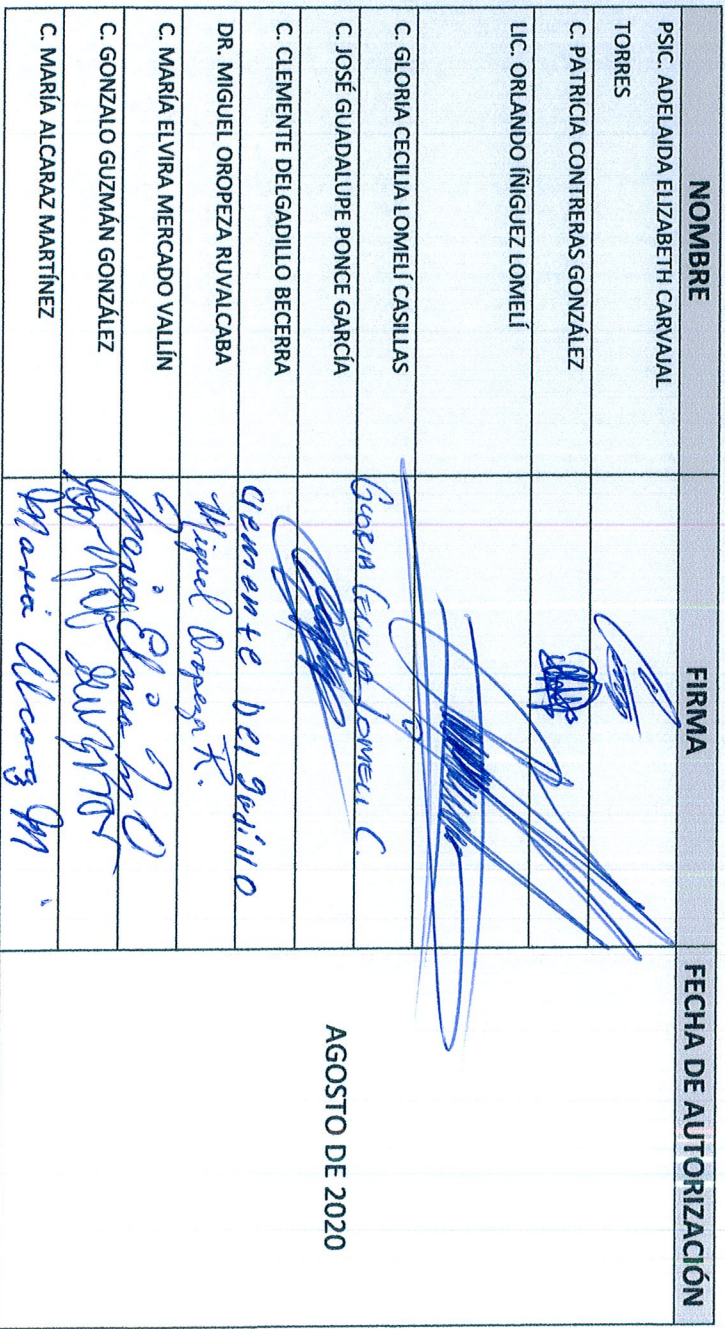 NOMBRE FIRMA FECHA DE AUTORIZACIÓN
PSIC. ADELAIDA ELIZABETH CARVAJAL
TORRES
C. PATRICIA CONTRERAS GONZÁLEZ
LIC. ORLANDO ÍÑIGUEZ LOMELÍ
C. GLORIA CECILIA LOMELÍ CASILLAS GLORIA CECILIA LOMELI C.
C. JOSÉ GUADALUPE PONCE GARCÍA
AGOSTO DE 2020
C. CLEMENTE DELGADILLO BECERRA Clemente Delgadillo
DR. MIGUEL OROPEZA RUVALCABA Miguel Oropeza R.
C. MARÍA ELVIRA MERCADO VALLÍN
C. GONZALO GUZMÁN GONZÁLEZ
C. MARÍA ALCARAZ MARTÍNEZ Maria Alcaraz M